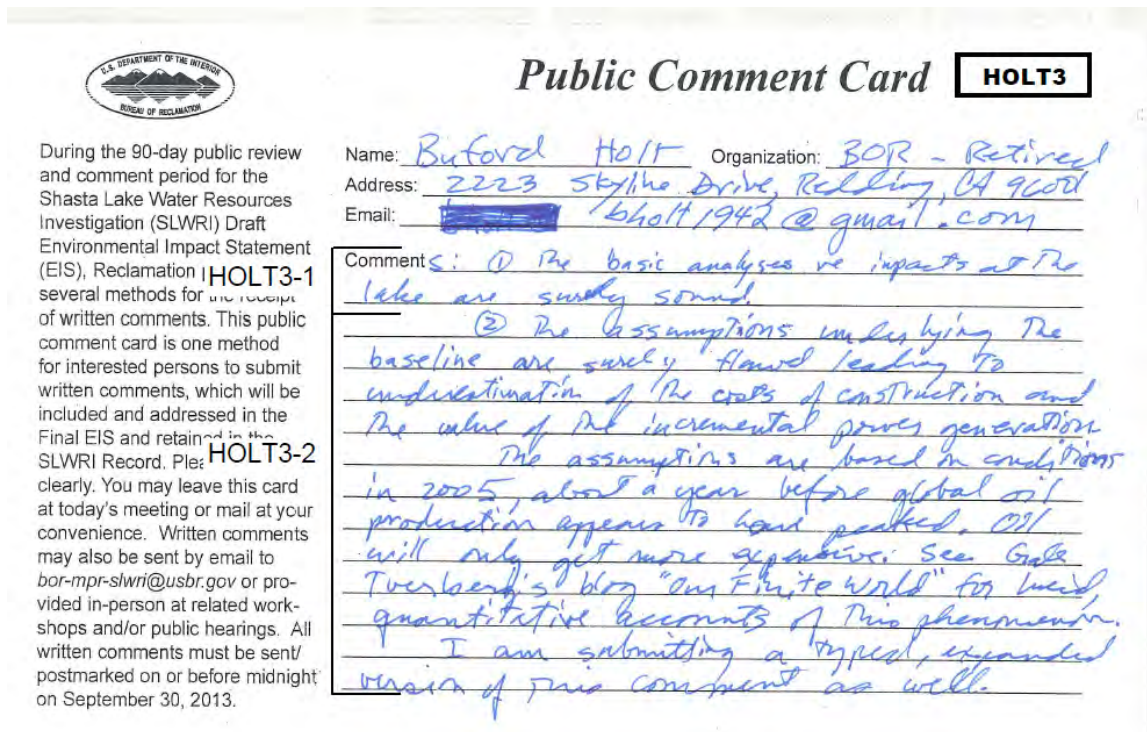 U.S. DEPARTMENT OF THE INTERIOR
BUREAU OF RECLAMATION
Public Comment Card
HOLT3
During the 90-day public review
and comment period for the
Shasta Lake Water Resources
Investigation (SLWRI) Draft
Environmental Impact Statement
(EIS), Reclamation
several methods for the receipt
of written comments. This public
comment card is one method
for interested persons to submit
written comments, which will be
included and addressed in the
Final EIS and retained in the
SLWRI Record.
clearly. You may leave this card
at today's meeting or mail at your
convenience. Written comments
may also be sent by email to
bor-mpr-slwri@usbr.gov or pro-
vided in-person at related work-
shops and/or public hearings. All
written comments must be sent/
postmarked on or before midnight
on September 30, 2013.
HOLT3-1
HOLT3-2
Name: Buford Holt Organization: BOR - Retired
Address: 2223 Skyline Drive, Redding, CA 96001
Email: bholt1942@gmail.com
Comments: ① The basic analyses re impacts at the
lake are surely sound.
② The assumptions underlying the
baseline are surely flawed leading to
underestimation of the costs of construction and
the value of the incremental power generation.
The assumptions are based on conditions
in 2005, about a year before global oil
production appears to have peaked. Oil
will only get more expensive. See Gale
Tverberg's blog "Our Finite World" for lucid,
quantitative accounts of this phenomenon.
I am submitting a typed, expanded
version of this comment as well.